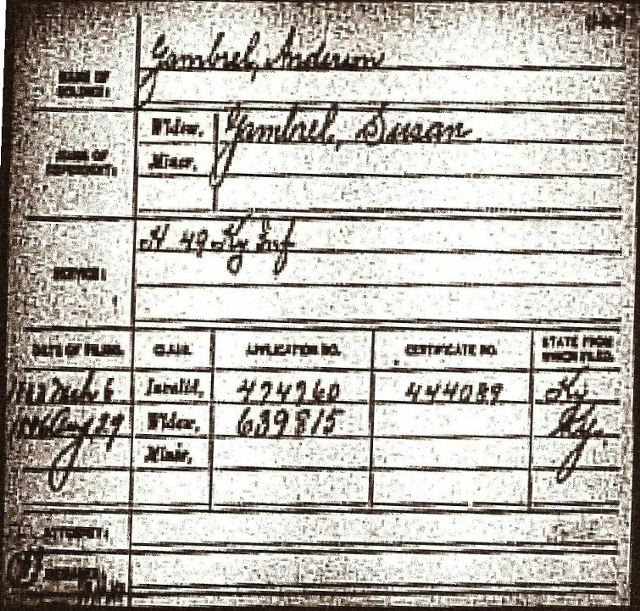 NAME OF SOLDIER: Gambrel, Anderson
NAME OF DEPENDENT: Widow, Gambrel, Susan
Minor,
SERVICE: H 49 Ky Inf
DATE OF FILING. CLASS. APPLICATION NO. CERTIFICATE NO. STATE FROM WHICH FILED.
Invalid, 474760 444089 Ky
Aug 29 Widow, 639815 Ky.
Minor,
ATTORNEY: